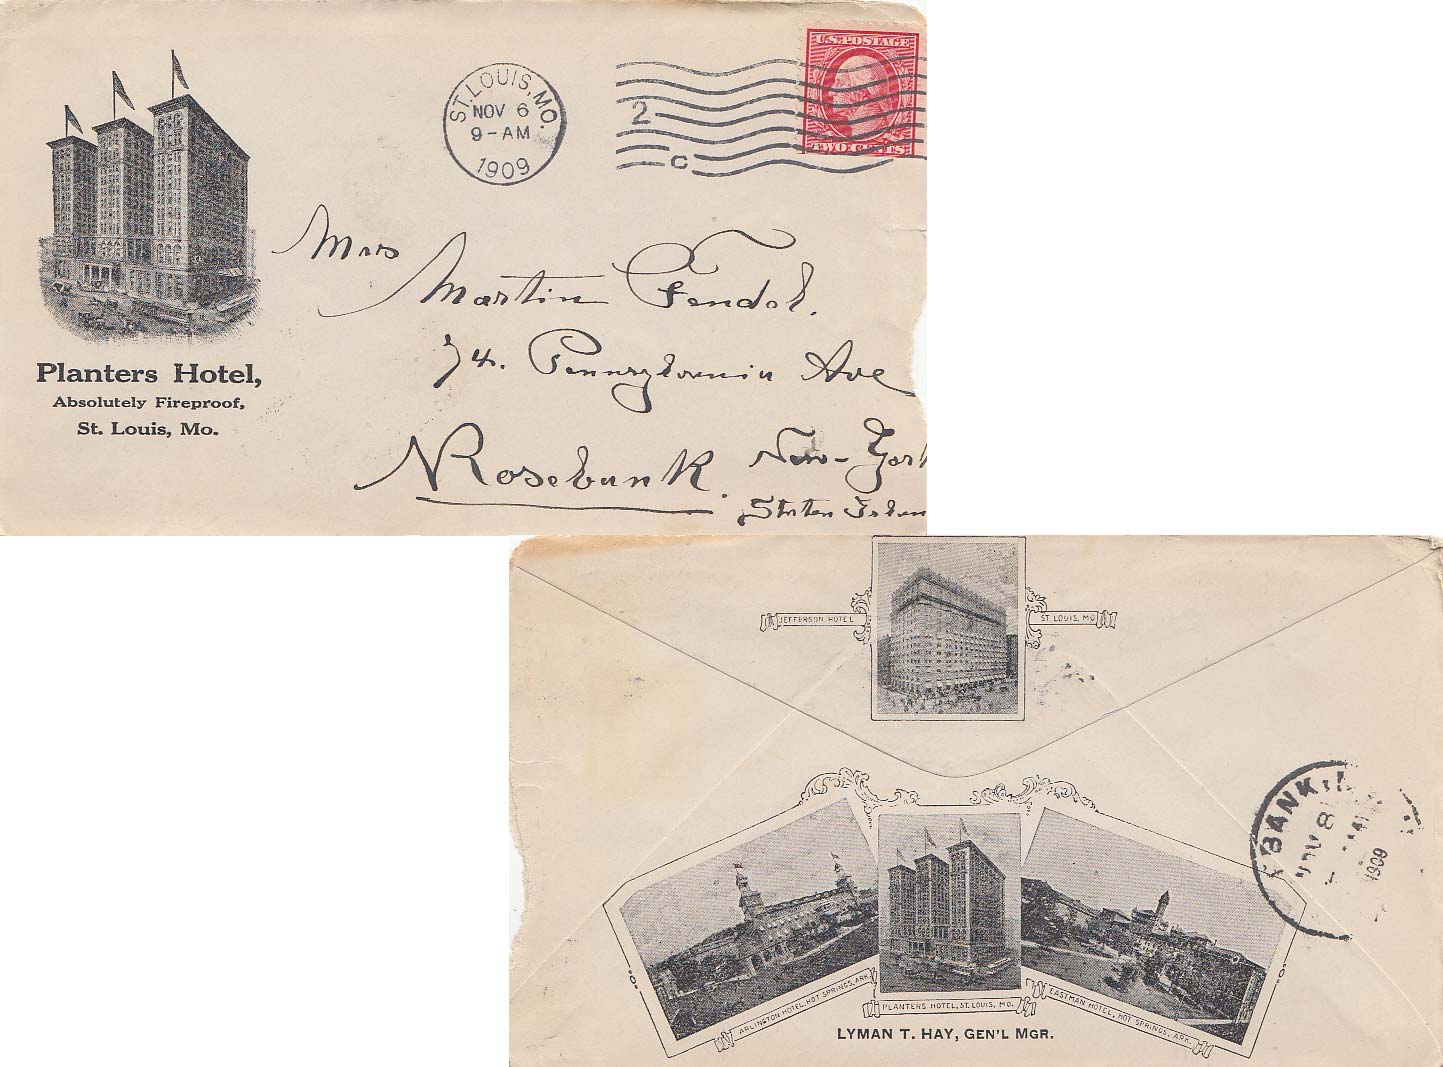 Planters Hotel,
Absolutely Fireproof,
St. Louis, Mo.
ST. LOUIS, MO.
NOV 6
9-AM
1909
2
C
U.S. POSTAGE
TWO CENTS
Mrs
Martin Fendel.
74. Pennsylvania Ave
Rosebank. New-York
Staten Islan
JEFFERSON HOTEL ST. LOUIS, MO
BANK
NOV 8
1909
ARLINGTON HOTEL, HOT SPRINGS, ARK.
PLANTERS HOTEL, ST. LOUIS, MO.
EASTMAN HOTEL, HOT SPRINGS, ARK.
LYMAN T. HAY, GEN'L MGR.